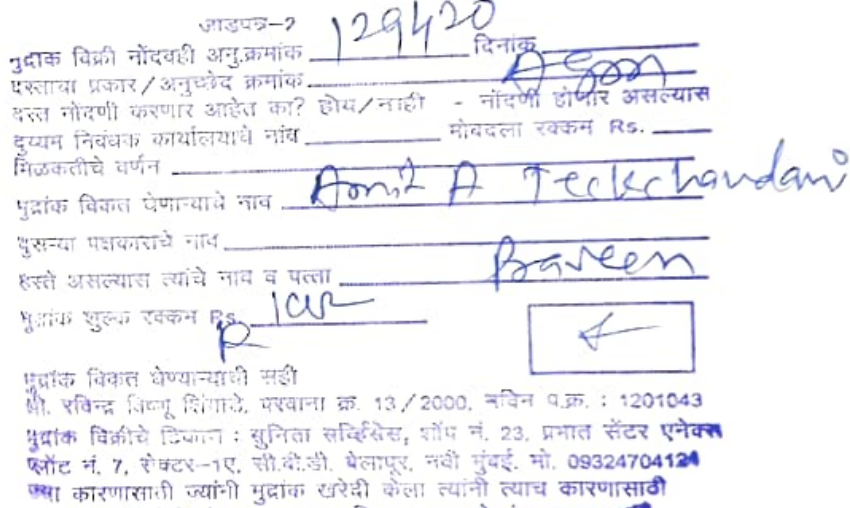 जोडपत्र-२
मुद्रांक विक्री नोंदवही अनु.क्रमांक 129420 दिनांक
दस्ताचा प्रकार/अनुच्छेद क्रमांक
दस्त नोंदणी करणार आहेत का? होय/नाही - नोंदणी होणार असल्यास
दुय्यम निबंधक कार्यालयाचे नांव मोबदला रक्कम Rs.
मिळकतीचे वर्णन
मुद्रांक विकत घेणाऱ्याचे नाव Amit A Teckchandani
दुसऱ्या पक्षकाराचे नाव
हस्ते असल्यास त्यांचे नाव व पत्ता Praveen
मुद्रांक शुल्क रक्कम Rs.
मुद्रांक विकत घेण्याऱ्याची सही
श्री. रविन्द्र विष्णू शिंगाडे, परवाना क्र. 13/2000, नविन प.क्र. : 1201043
मुद्रांक विक्रीचे ठिकाण : सुनिता सर्व्हिसेस, शॉप नं. 23, प्रभात सेंटर एनेक्स
प्लॉट नं. 7, सेक्टर-1ए, सी.बी.डी. बेलापूर, नवी मुंबई. मो. 09324704124
ज्या कारणासाठी ज्यांनी मुद्रांक खरेदी केला त्यांनी त्याच कारणासाठी